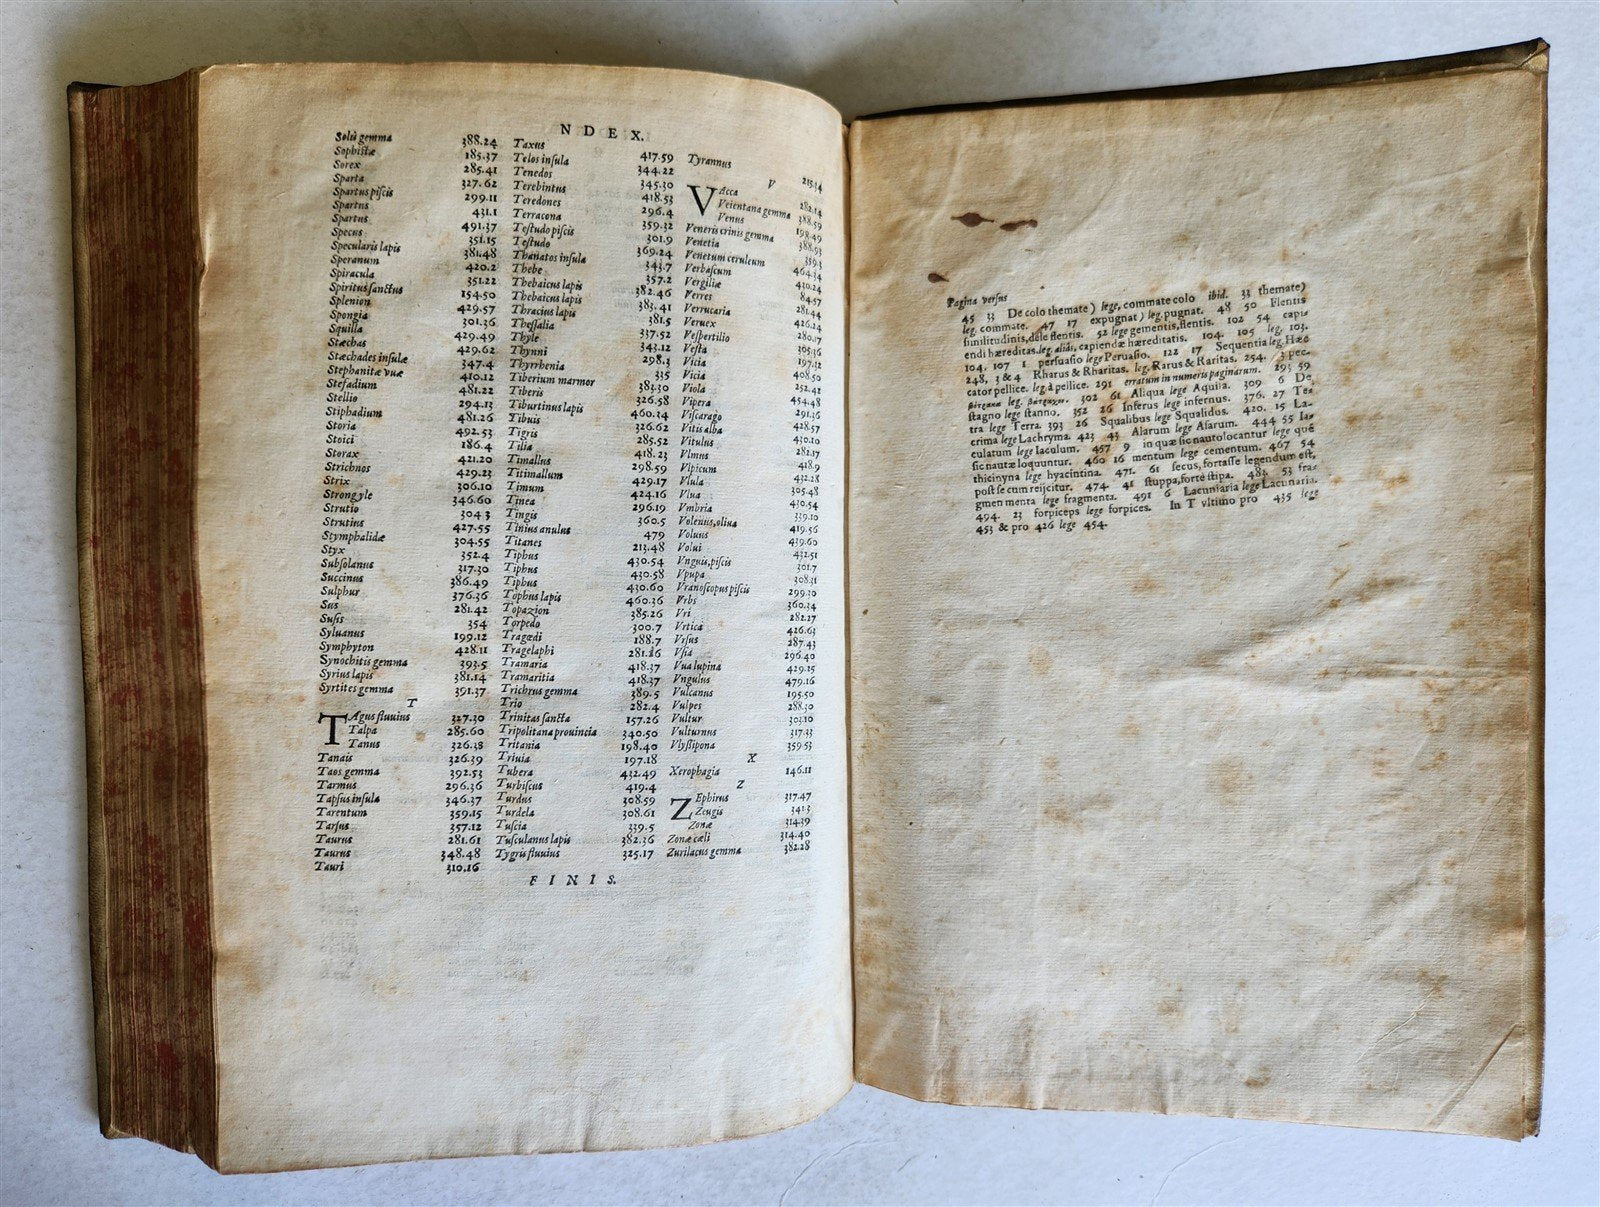 NDEX.
Solis gemma 388.24
Sophistæ 185.37
Sorex 285.41
Sparta 327.62
Spartus piscis 299.11
Spartus 431.1
Spartus 491.37
Specus 351.15
Specularis lapis 381.48
Speranum 420.2
Spiracula 351.22
Spiritus sanctus 154.50
Splenion 429.57
Spongia 301.36
Squilla 429.49
Stæchas 429.62
Stæchades insulæ 347.4
Stephanitæ vuæ 410.12
Stefadium 481.22
Stellio 294.13
Stiphadium 481.26
Storia 492.53
Stoici 186.4
Storax 421.20
Strichnos 429.23
Strix 306.10
Strongyle 346.60
Strutio 304 3
Strutius 427.55
Stymphalidæ 304.55
Styx 352.4
Subsolanus 317.30
Succinus 386.49
Sulphur 376.36
Sus 281.42
Susis 354
Syluanus 199.12
Symphyton 428.11
Synochitis gemma 393.5
Syrius lapis 381.14
Syrtites gemma 391.37
T
TAgus fluuius 327.30
Talpa 285.60
Tanus 326.38
Tanais 326.39
Taos gemma 392.53
Tarmus 296.36
Tapsus insula 346.37
Tarentum 359.15
Tarsus 357.12
Taurus 281.61
Taurus 348.48
Tauri 310.16
Taxus
Telos insula 417.59
Tenedos 344.22
Terebintus 345.30
Teredones 418.53
Terracona 296.4
Testudo piscis 359.32
Testudo 301.9
Thanatos insula 369.24
Thebe 343.7
Thebaicus lapis 357.2
Thebaicus lapis 382.46
Thracius lapis 383.41
Thessalia 381.5
Thyle 337.52
Thynni 343.12
Thyrrhenia 298.3
Tiberium marmor 335
Tiberis 383.30
Tiburtinus lapis 326.58
Tibuis 460.34
Tigris 326.62
Tilia 285.52
Timallus 418.23
Titimallum 298.59
Timum 429.17
Tinea 424.16
Tingis 296.19
Tinius anulus 360.5
Titanes 479
Tiphus 213.48
Tiphus 430.54
Tiphus 430.58
Tophus lapis 430.60
Topazion 460.36
Torpedo 385.26
Tragœdi 300.7
Tragelaphi 188.7
Tramaria 281.26
Tramaritia 418.37
Trichrus gemma 418.37
Trio 389.5
Trinitas sancta 282.4
Tripolitana prouincia 157.26
Tritania 340.50
Triuia 198.40
Tubera 197.18
Turbiscus 432.49
Turdus 419.4
Turdela 308.59
Tuscia 308.61
Tusculanus lapis 339.5
Tygris fluuius 382.36
325.17
Tyrannus 215.34
V
VAcca 282.14
Veientana gemma 388.59
Venus 198.49
Veneris crinis gemma 388.53
Venetia 359.3
Venetum ceruleum 464.34
Verbascum 430.24
Vergiliæ 84.57
Verres 281.44
Verrucaria 426.24
Veruex 280.17
Vespertilio 305.36
Vesta 197.32
Vicia 408.50
Vicia 252.42
Viola 454.48
Vipera 291.36
Viscarago 428.57
Vitis alba 430.10
Vitulus 282.17
Vlmus 418.9
Vlpicum 432.28
Vlula 305.48
Vlua 430.54
Vmbria 339.10
Volenus, oliua 419.56
Voluus 439.60
Volui 432.51
Vnguis, piscis 301.7
Vpupa 308.31
Vranoscopus piscis 299.30
Vrbs 360.34
Vri 282.27
Vrtica 426.63
Vrsus 287.43
Vsia 296.40
Vua lupina 429.15
Vngulus 479.16
Vulcanus 195.50
Vulpes 288.30
Vultur 303.10
Vulturnus 317.33
Vlyssipona 359.53
X
Xerophagia 146.11
Z
ZEphirus 317.47
Zeugis 341.3
Zonæ 314.39
Zonæ cæli 314.40
Zurilacus gemma 382.28
F I N I S.
Pagina versus
45 33 De colo themate) lege, commate colo ibid. 33 themate)
leg. commate. 47 17 expugnat) leg. pugnat. 48 50 Flentis
similitudinis, dele flentis. 52 lege gementis, flentis. 102 54 capi-
endi hæreditas. leg. alidi, capiendæ hæreditatis. 104. 105 leg. 103.
104. 107 1 persuasio lege Peruasio. 122 17 Sequentia leg. Hæc
248, 3 & 4 Rharus & Rharitas. leg. Rarus & Raritas. 254. 3 pec-
cator pellice. leg. à pellice. 291 erratum in numeris paginarum. 293 59
leg. 302 61 Aliqua lege Aquila. 309 6 De
stagno lege stanno. 352 26 Inferus lege infernus. 376. 27 Te-
tra lege Terra. 393 26 Squalibus lege Squalidus. 420. 15 La-
crima lege Lachryma. 423 43 Alarum lege Asarum. 444 55 Ia-
culatum lege iaculum. 457 9 in quæ sic nauto locantur lege quę
sic nautæ loquuntur. 460 16 mentum lege cementum. 467 54
thicinyna lege hyacintina. 471. 61 secus, fortasse legendum est,
post se cum reijcitur. 474. 41 stuppa, forte stipa. 482. 53 fra-
gmen menta lege fragmenta. 491 6 Lacunïaria lege Lacunaria.
494. 23 forpiceps lege forpices. In T vltimo pro 435 lege
453 & pro 426 lege 454.